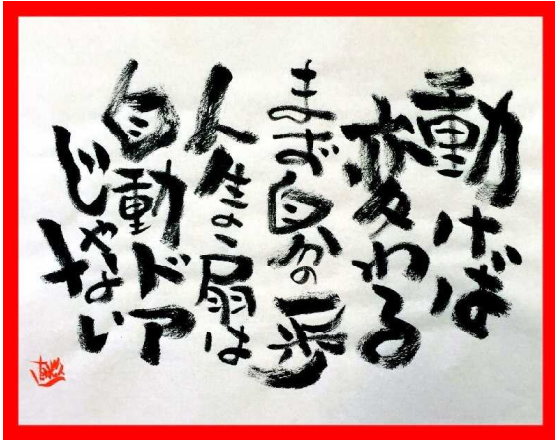 動けば
変わる
まず自分の一歩
人生の扉は
自動ドア
じゃない